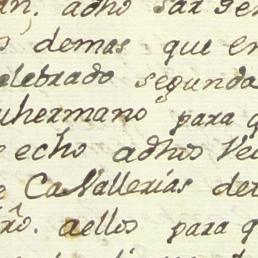 an. adho sar gen
demas que en
elebrado segunda
uhermano para q
echo adhos Ve
e Cavallerias de
ro. aellos para q